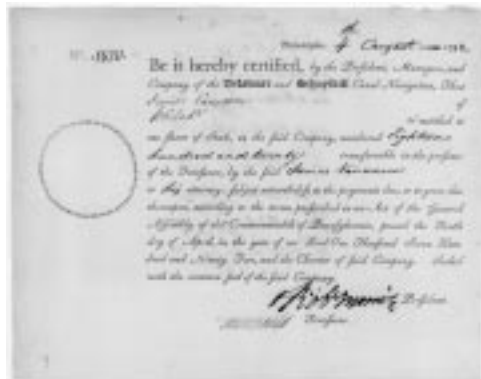 Philadelphia, August
Be it hereby certified, by the President, Managers, and
Company of the Delaware and Schuylkill Canal Navigation, That
of
is entitled to
one Share of Stock, in the said Company, numbered Eighteen
hundred and twenty transferable in the presence
of the Treasurer, by the said James
or his attorney, subject to the payments due, or to grow due
thereupon, according to the terms prescribed in an Act of the General
Assembly of the Commonwealth of Pennsylvania, passed the Tenth
day of April, in the year of our Lord One Thousand Seven Hun-
dred and Ninety Two, and the Charter of said Company. Sealed
with the common seal of the said Company.
President.
Treasurer.